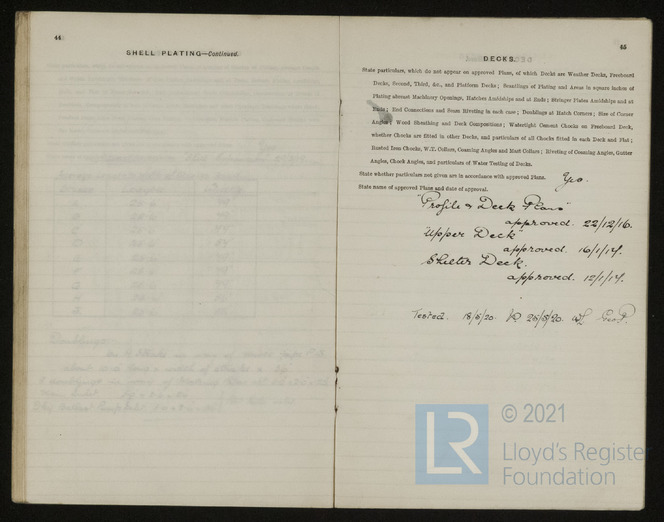 44
SHELL PLATING—Continued.
45
DECKS.
State particulars, which do not appear on approved Plans, of which Decks are Weather Decks, Freeboard
Decks, Second, Third, &c., and Platform Decks; Scantlings of Plating and Areas in square inches of
Plating abreast Machinery Openings, Hatches Amidships and at Ends; Stringer Plates Amidships and at
Ends; End Connections and Seam Riveting in each case; Doublings at Hatch Corners; Size of Corner
Angles; Wood Sheathing and Deck Compositions; Watertight Cement Chocks on Freeboard Deck,
whether Chocks are fitted in other Decks, and particulars of all Chocks fitted in each Deck and Flat;
Rusted Iron Chocks, W.T. Collars, Coaming Angles and Mast Collars; Riveting of Coaming Angles, Gutter
Angles, Chock Angles, and particulars of Water Testing of Decks.
State whether particulars not given are in accordance with approved Plans. Yes.
State name of approved Plans and date of approval.
"Profile & Deck Plans"
approved. 22/12/16.
"Upper Deck"
approved. 16/1/17.
Shelter Deck.
approved. 12/1/17.
Tested. 18/5/20. 26/5/20.
© 2021
LR
Lloyd's Register
Foundation